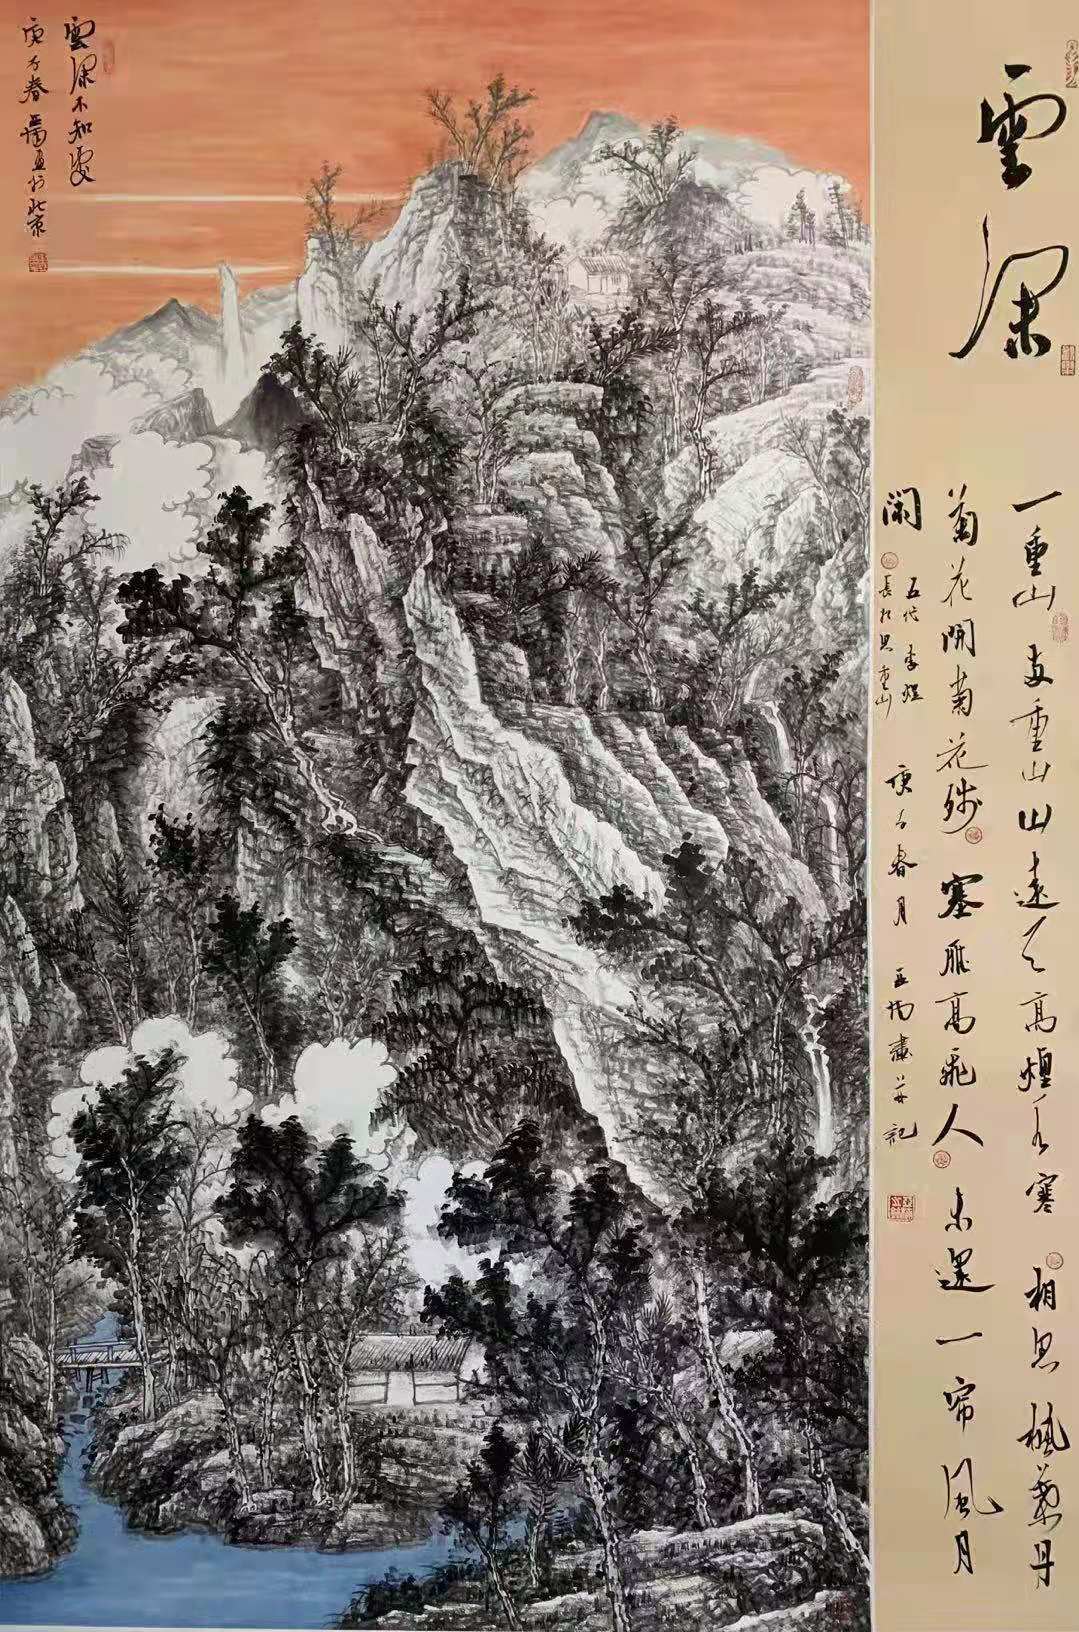 雲深
一重山兩重山山遠天高煙水寒相思楓葉丹
菊花開菊花殘塞雁高飛人未還一帘風月
閑
五代李煜
長相思重山
庚子春月并記
雲深不知處
庚子春於北京